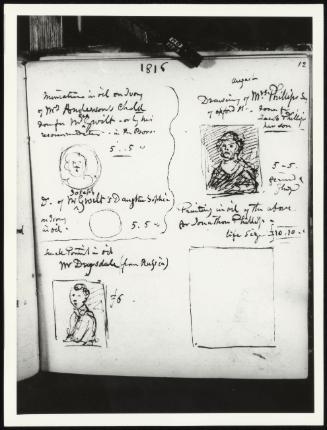 1816
12
Miniature in oil on Ivory
of Mrs Anderson's Child
done for Mr Gwilt - or by his
recommendation - in the Boro.
5 .. 5 ..
Do. of Mr Joseph Gwilt's Daughter Sophia
on Ivory
in oil.
5.5
Small Portrait in oil
Mr Drysdale (from Russia)
£6.
Drawing of Mrs Phillips Sen
of Oxford St.
done for
Jacob Phillips
her son
5 - 5.
Painting in oil of the above
for Jonathan Phillips
life size
£10.10.